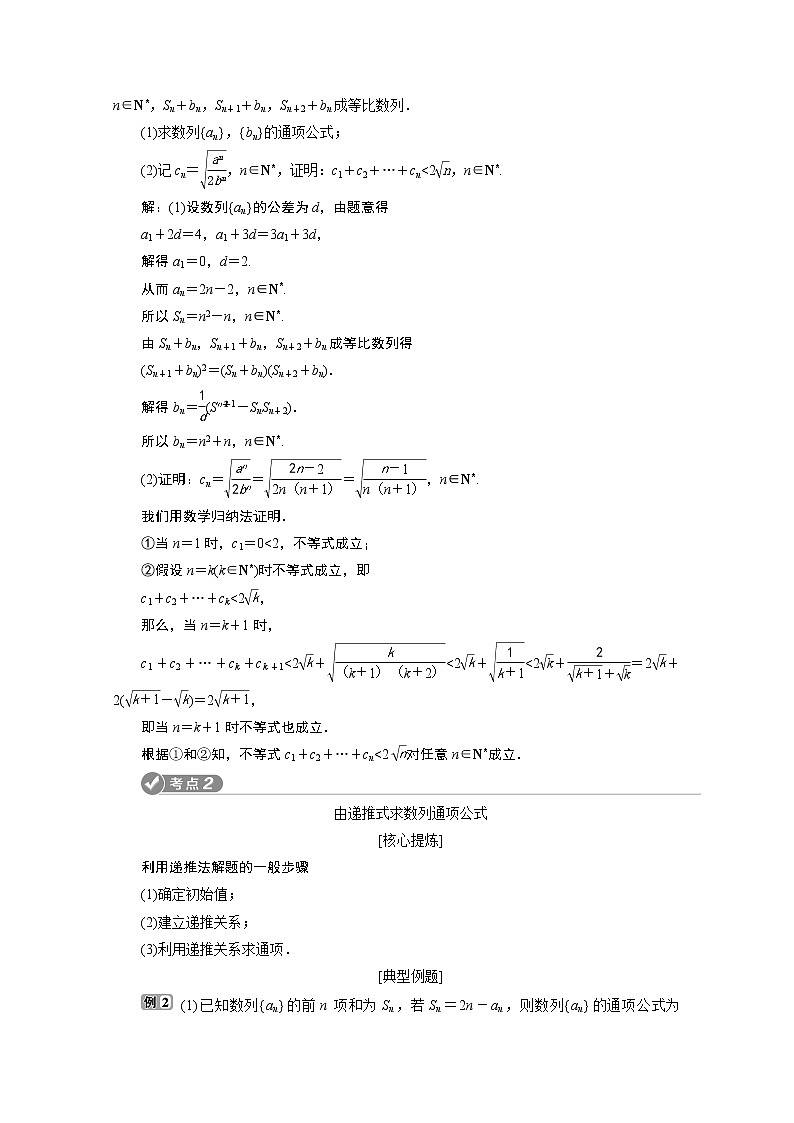 n∈N*，Sn＋bn，Sn＋1＋bn，Sn＋2＋bn成等比数列．
(1)求数列{an}，{bn}的通项公式；
(2)记cn＝√(an/2bn)，n∈N*，证明：c1＋c2＋…＋cn<2√n，n∈N*.
解：(1)设数列{an}的公差为d，由题意得
a1＋2d＝4，a1＋3d＝3a1＋3d，
解得a1＝0，d＝2.
从而an＝2n－2，n∈N*.
所以Sn＝n2－n，n∈N*.
由Sn＋bn，Sn＋1＋bn，Sn＋2＋bn成等比数列得
(Sn＋1＋bn)2＝(Sn＋bn)(Sn＋2＋bn)．
解得bn＝1/d(Sn＋1－SnSn＋2)．
所以bn＝n2＋n，n∈N*.
(2)证明：cn＝√(an/2bn)＝√((2n－2)/(2n（n＋1）))＝√((n－1)/(n（n＋1）))，n∈N*.
我们用数学归纳法证明．
①当n＝1时，c1＝0<2，不等式成立；
②假设n＝k(k∈N*)时不等式成立，即
c1＋c2＋…＋ck<2√k，
那么，当n＝k＋1时，
c1＋c2＋…＋ck＋ck＋1<2√k＋√(k/(（k＋1）（k＋2）))<2√k＋√(1/(k＋1))<2√k＋2/(√(k＋1)＋√k)＝2√k＋
2(√(k＋1)－√k)＝2√(k＋1)，
即当n＝k＋1时不等式也成立．
根据①和②知，不等式c1＋c2＋…＋cn<2√n对任意n∈N*成立．
考点2
由递推式求数列通项公式
[核心提炼]
利用递推法解题的一般步骤
(1)确定初始值；
(2)建立递推关系；
(3)利用递推关系求通项．
[典型例题]
例2 (1)已知数列{an}的前n项和为Sn，若Sn＝2n－an，则数列{an}的通项公式为